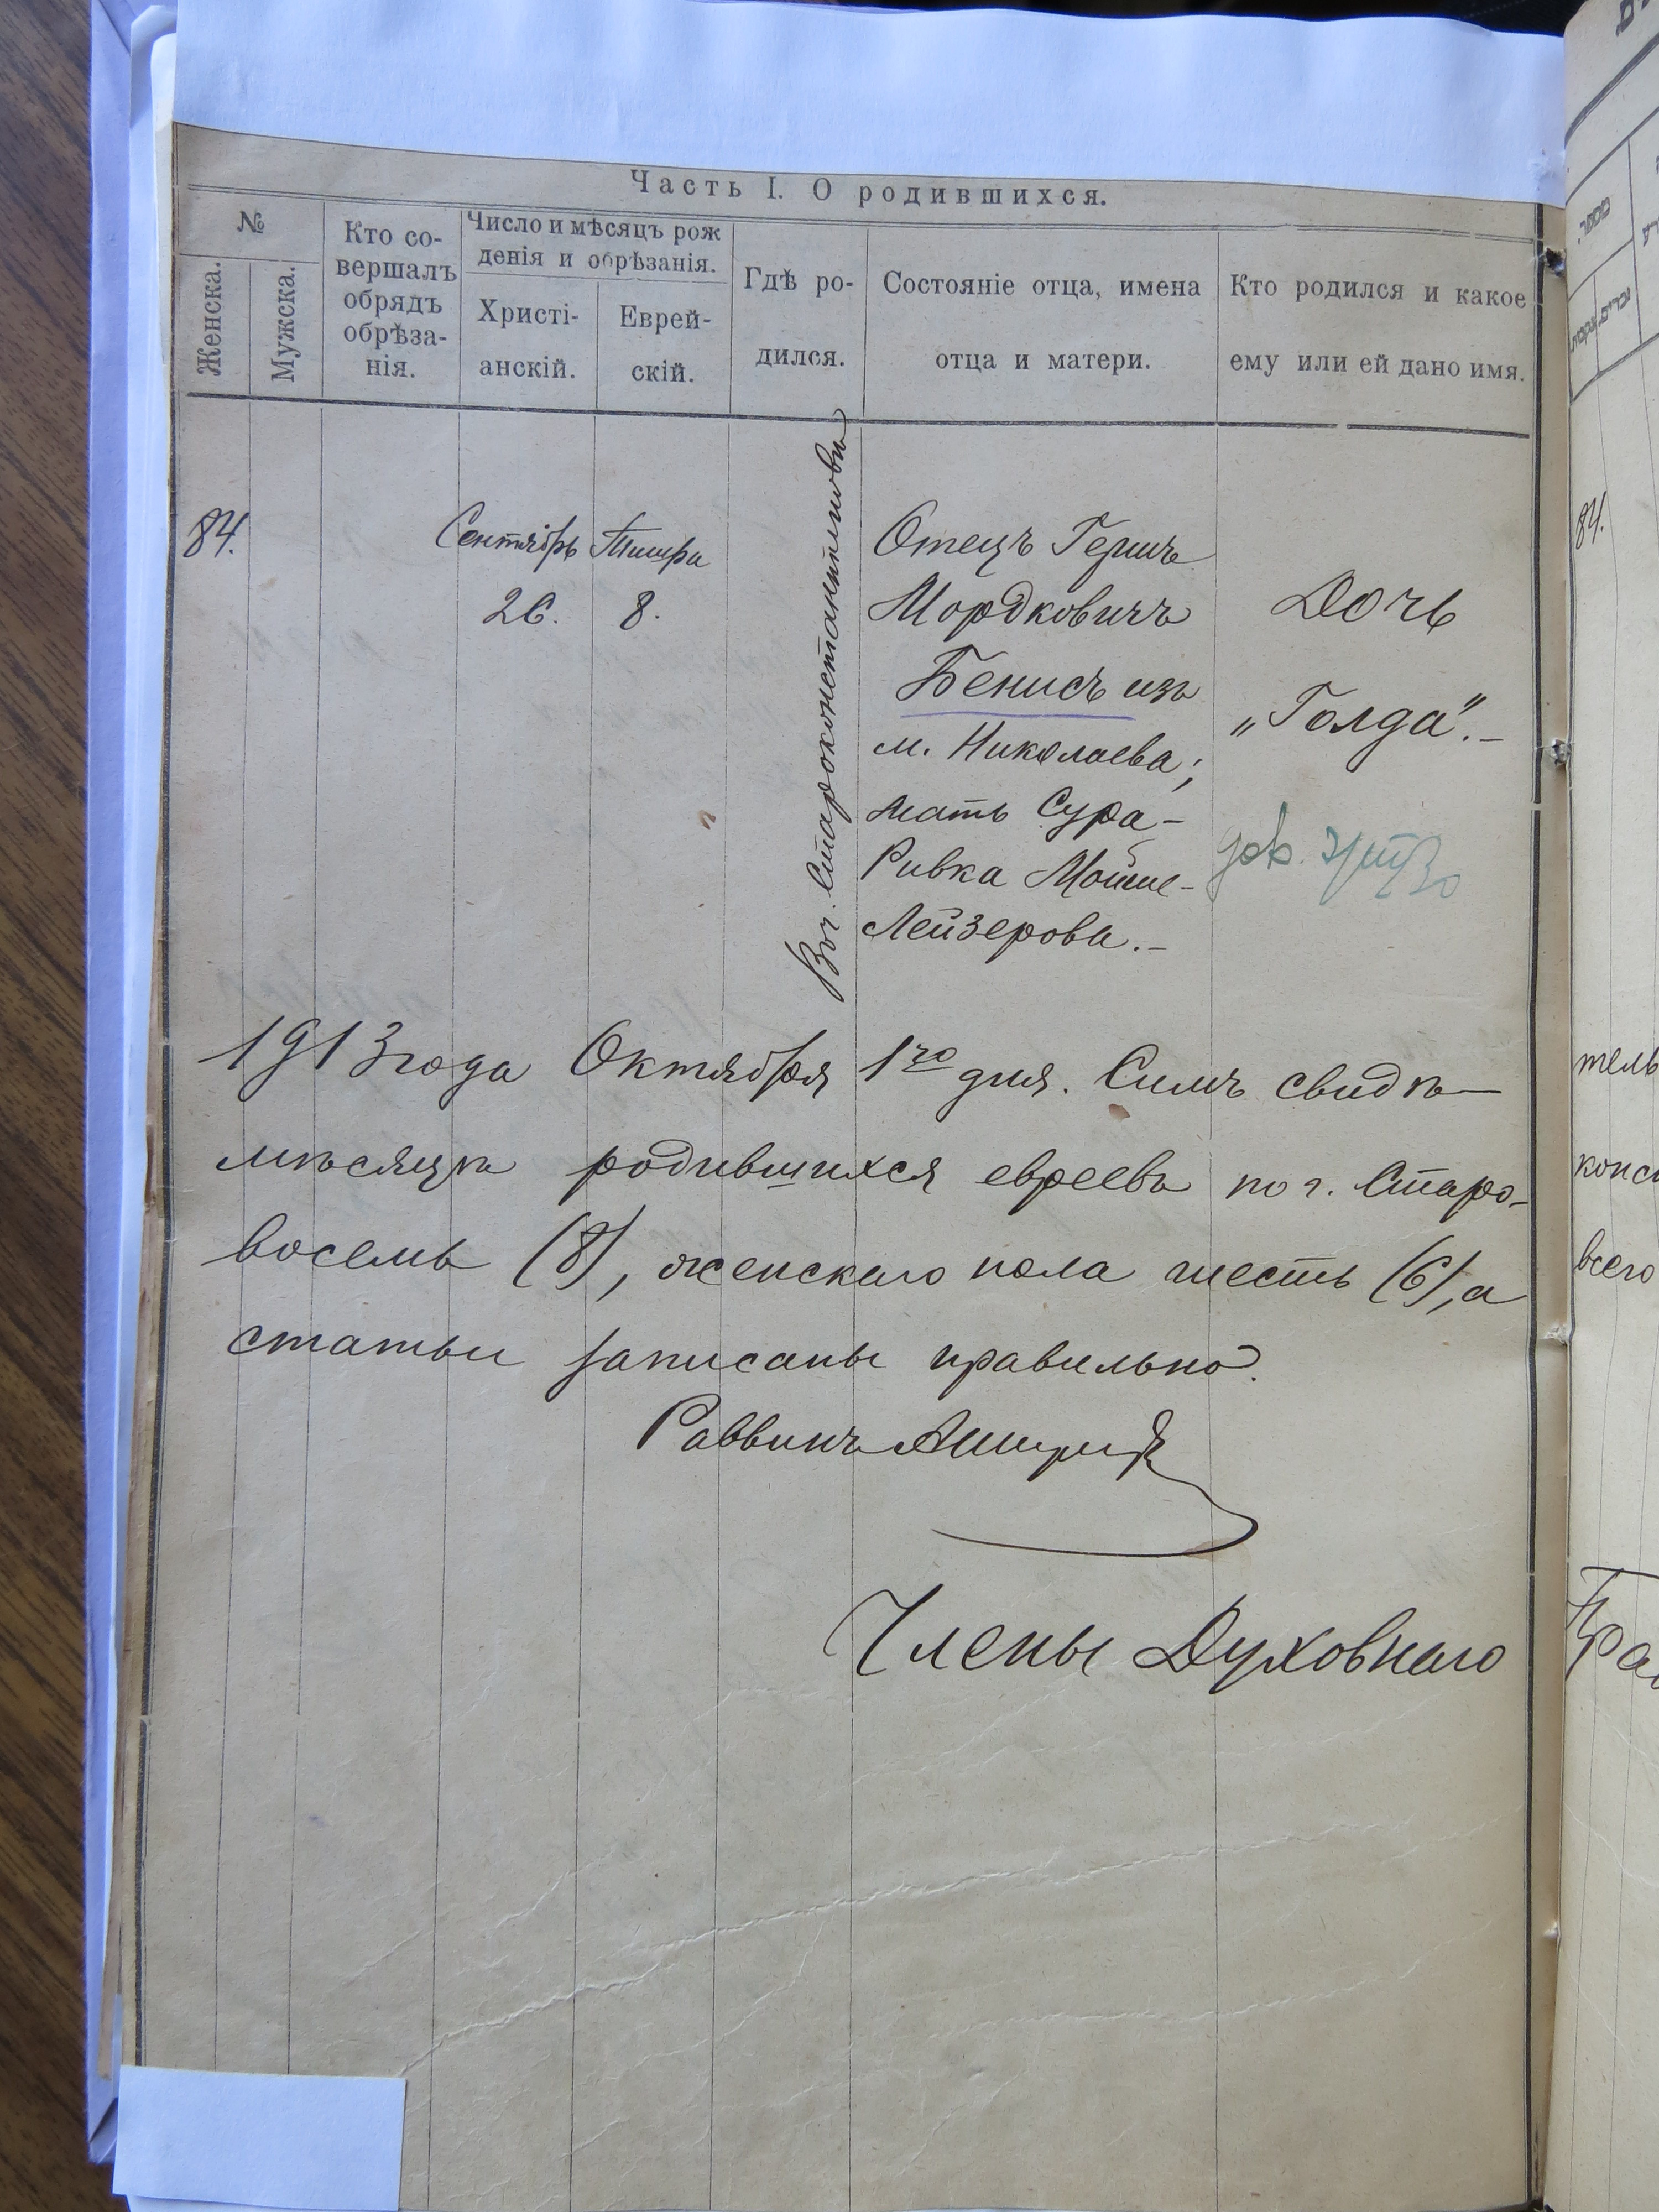 Часть I. О родившихся.
№
Женска.
Мужска.
Кто со-
вершалъ
обрядъ
обрѣза-
нія.
Число и мѣсяцъ рож
денія и обрѣзанія.
Христі-
анскій.
Еврей-
скій.
Гдѣ ро-
дился.
Состояніе отца, имена
отца и матери.
Кто родился и какое
ему или ей дано имя.
84.
Сентябрь
26.
Тишри
8.
Въ г. Староконстантиновѣ
Отецъ Гершъ
Мордковичъ
Бенисъ изъ
м. Николаева;
мать Сура-
Ривка Мойше-
Лейзерова.-
Дочь
„Голда".-
дов.
1913 года Октября 1го дня. Симъ свидѣ-
мѣсяцѣ родившихся евреевъ по г. Старо-
восемь (8), женскаго пола шесть (6), а
статьи записаны правильно.
Раввинъ
Члены Духовнаго
84.
тель
конс
всего